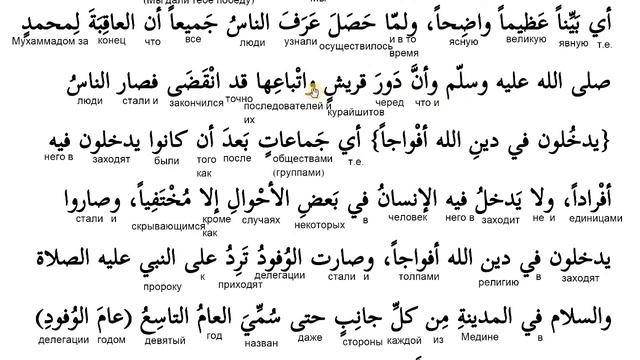 (Мы дали тебе победу) мы
أي بَيِّناً عَظيماً واضِحاً، ولمّا حَصَلَ عَرَفَ الناسُ جَميعاً أن العاقِبَةَ لِمحمدٍ
т.е. явную великую ясную и в то время осуществилось узнали люди все что конец Мухаммадом за
صلى الله عليه وسلّم وأنَّ دَورَ قريشٍ واتْباعِها قد انْقَضَى فصار الناسُ
что и черед курайшитов последователей и их точно закончился стали и люди
{يدخُلون في دينِ الله أفْواجاً} أي جَماعاتٍ بَعدَ أن كانوا يدخلون فيه
т.е. обществами (группами) после того как были заходят него в
أفْراداً، ولا يَدخلُ فيه الإنسانُ في بَعضِ الأحْوالِ إلا مُخْتَفِياً، وصاروا
единицами и не заходит него в человек в некоторых случаях кроме как скрывающимся и стали
يدخلون في دين الله أفواجاً، وصارت الوُفودُ تَرِدُ على النبي عليه الصلاة
заходят в религию толпами и стали делегации приходят к пророку
والسلام في المدينةِ مِن كلِّ جانِبٍ حتى سُمِّيَ العامُ التاسِعُ (عامَ الوُفودِ)
в Медине из каждой стороны даже назван год девятый годом делегации